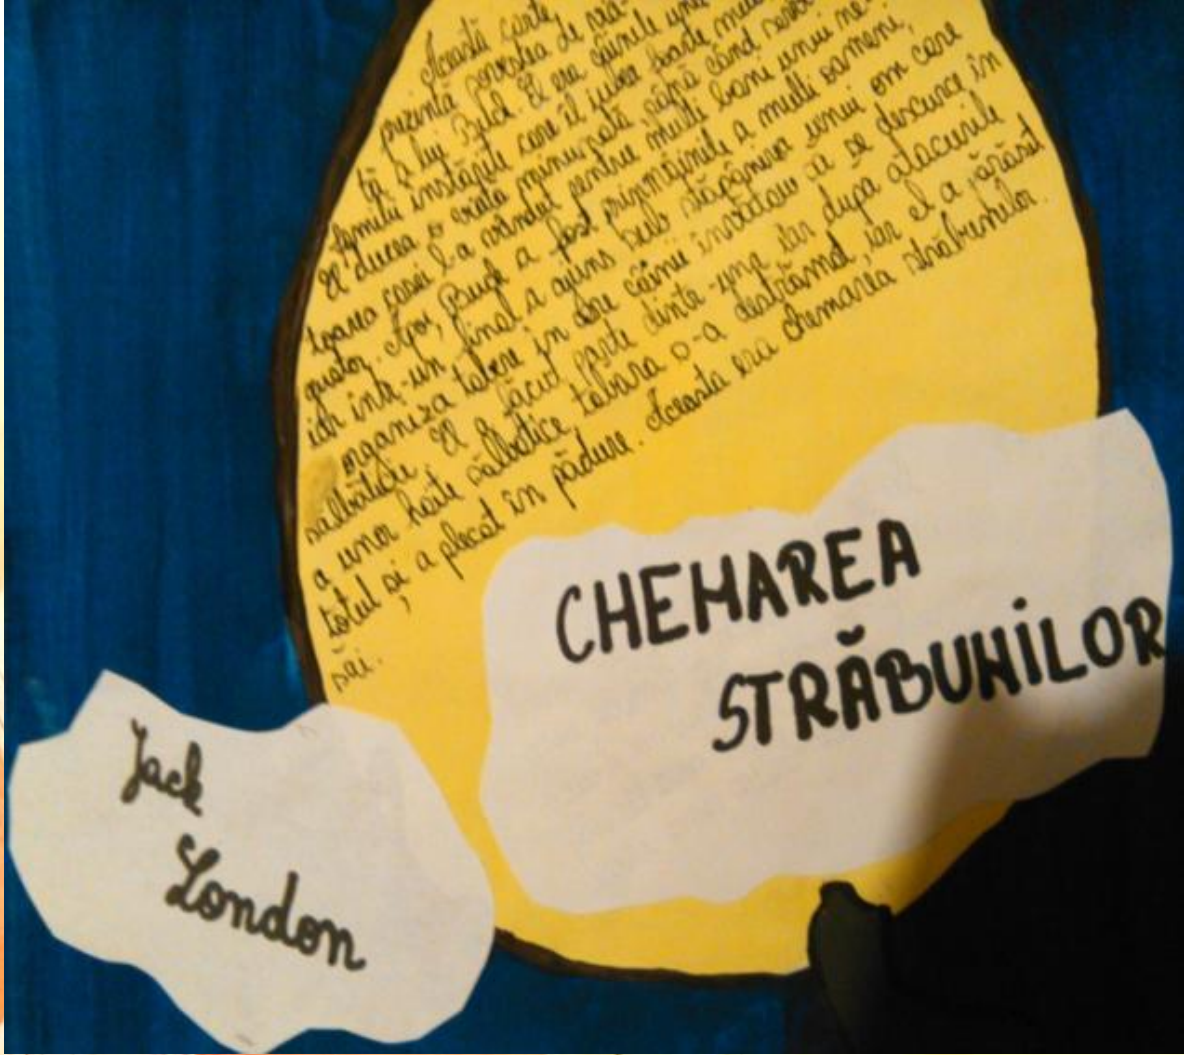 Această carte
prezintă povestea de via-
ță a lui Buck. El era câinele unei
familii înstărite care îl iubea foarte
El ducea o viață minunată, până când
toarea casei l-a vândut pentru mulți bani unui ne-
gustor. Apoi, Buck a fost prin mâinile a multi oameni,
iar într-un final a ajuns sub stăpânirea unui om care
organiza tabere în care câinii învătau a se descurca în
sălbăticie. El a făcut parte dintr-una, iar dupa atacurile
a unor haite sălbatice, tabăra s-a destrămat, iar el a părăsit
totul și a plecat în pădure. Aceasta era chemarea străbunilor
săi.
CHEMAREA
STRĂBUNILOR
Jack
London